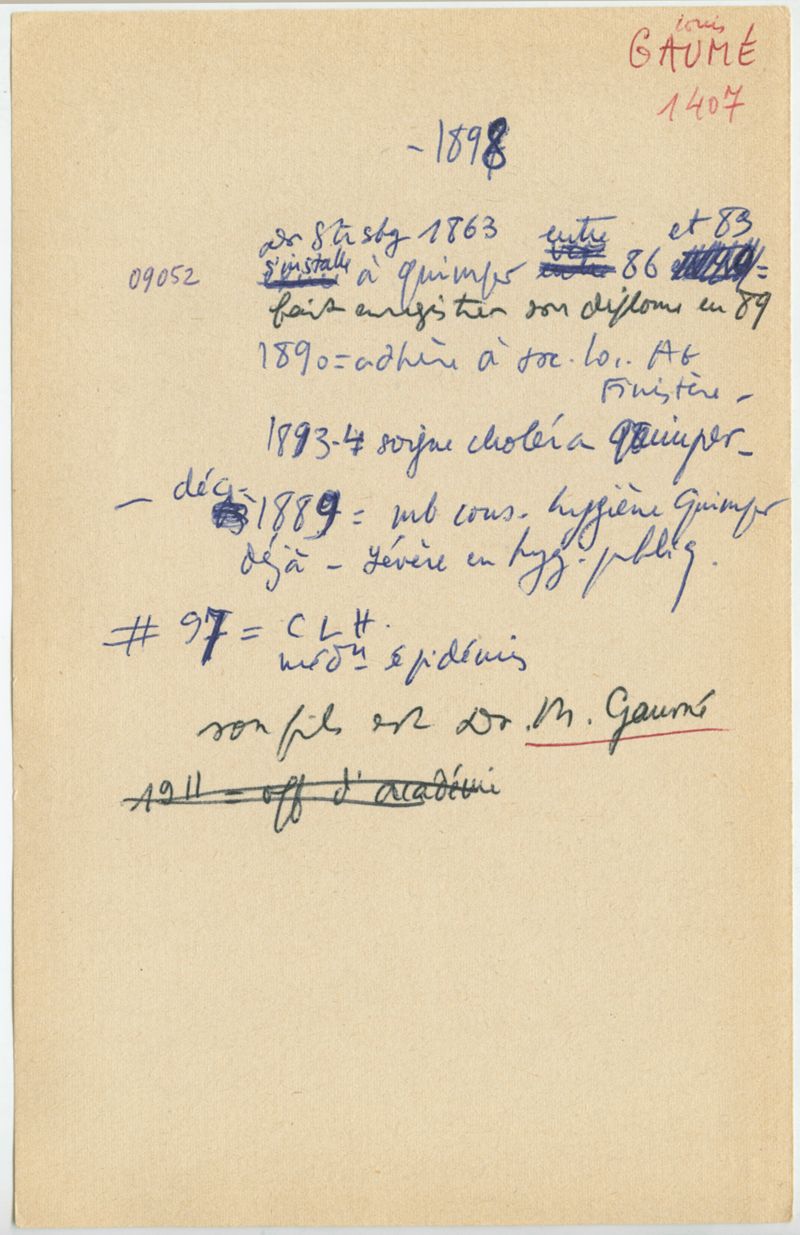 Louis
GAUMÉ
1407
- 1898
Dr Strsbg 1863 entre et 83
09052 s'installe à Quimper 86
fait enregistrer son diplome en 89
1890 = adhère à soc. loc. AG
Finistère -
1893-4 soigne choléra Quimper -
- déc-
1889 = mb cons. hygiène Quimper
déjà - sévère en hyg. publiq.
# 97 = CLH.
médn épidémies
son fils est Dr. M. Gaumé
1911 = off d'académie